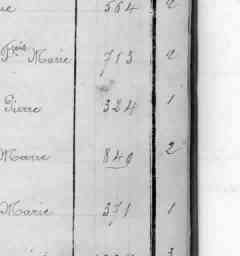 564 2
Marie 713 2
Pierre 324 1
Marie 840 2
Marie 371 1
3